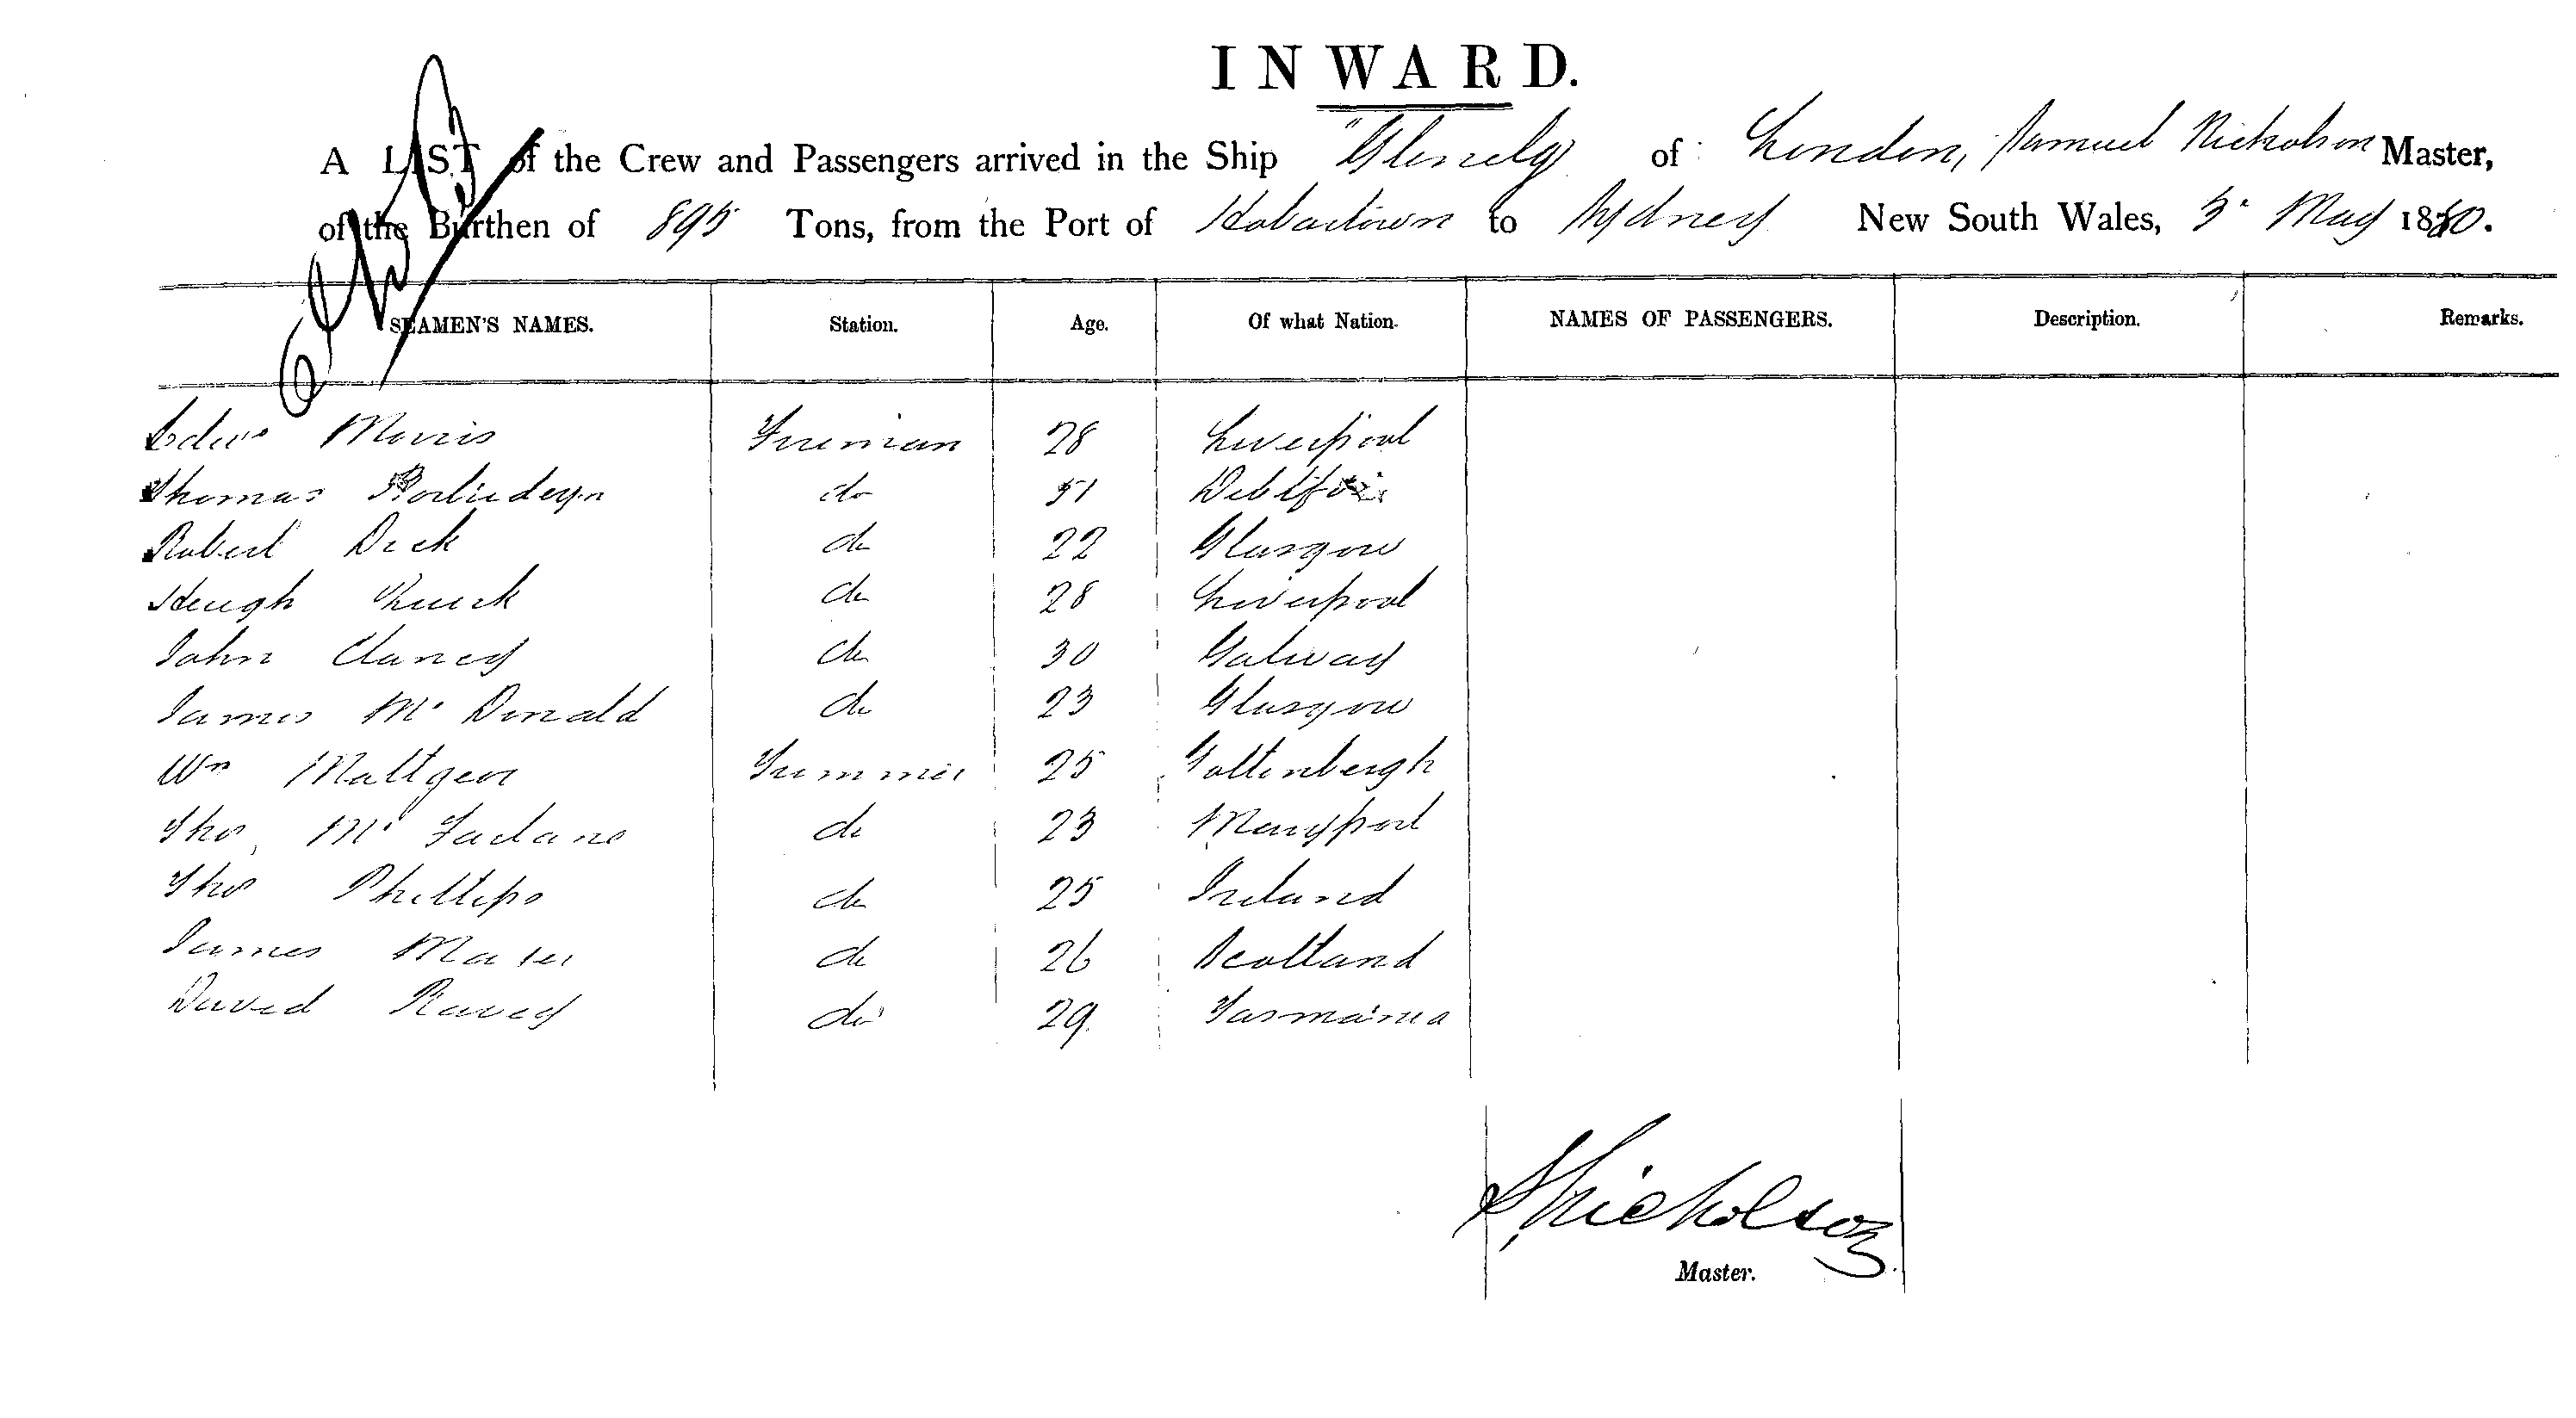 INWARD.
A LIST of the Crew and Passengers arrived in the Ship "Glenelg of London, Samuel Nicholson Master,
of the Burthen of 895 Tons, from the Port of Hobartown to Sydney New South Wales, 3 May 1880.
SEAMEN'S NAMES. Station. Age. Of what Nation. NAMES OF PASSENGERS. Description. Remarks.
Morris Fireman 28 Liverpool
Thomas do 51
Robert Dick do 22 Glasgow
Heugh Quirk do 28 Liverpool
John Clancy do 30 Galway
James Mc Donald do 23 Glasgow
Wm Trimmer 25 Gottenbergh
Thos Mc Farlane do 23 Maryport
Thos Phillips do 25 Ireland
James do 26 Scotland
David do 29. Tasmania
S Nicholson
Master.